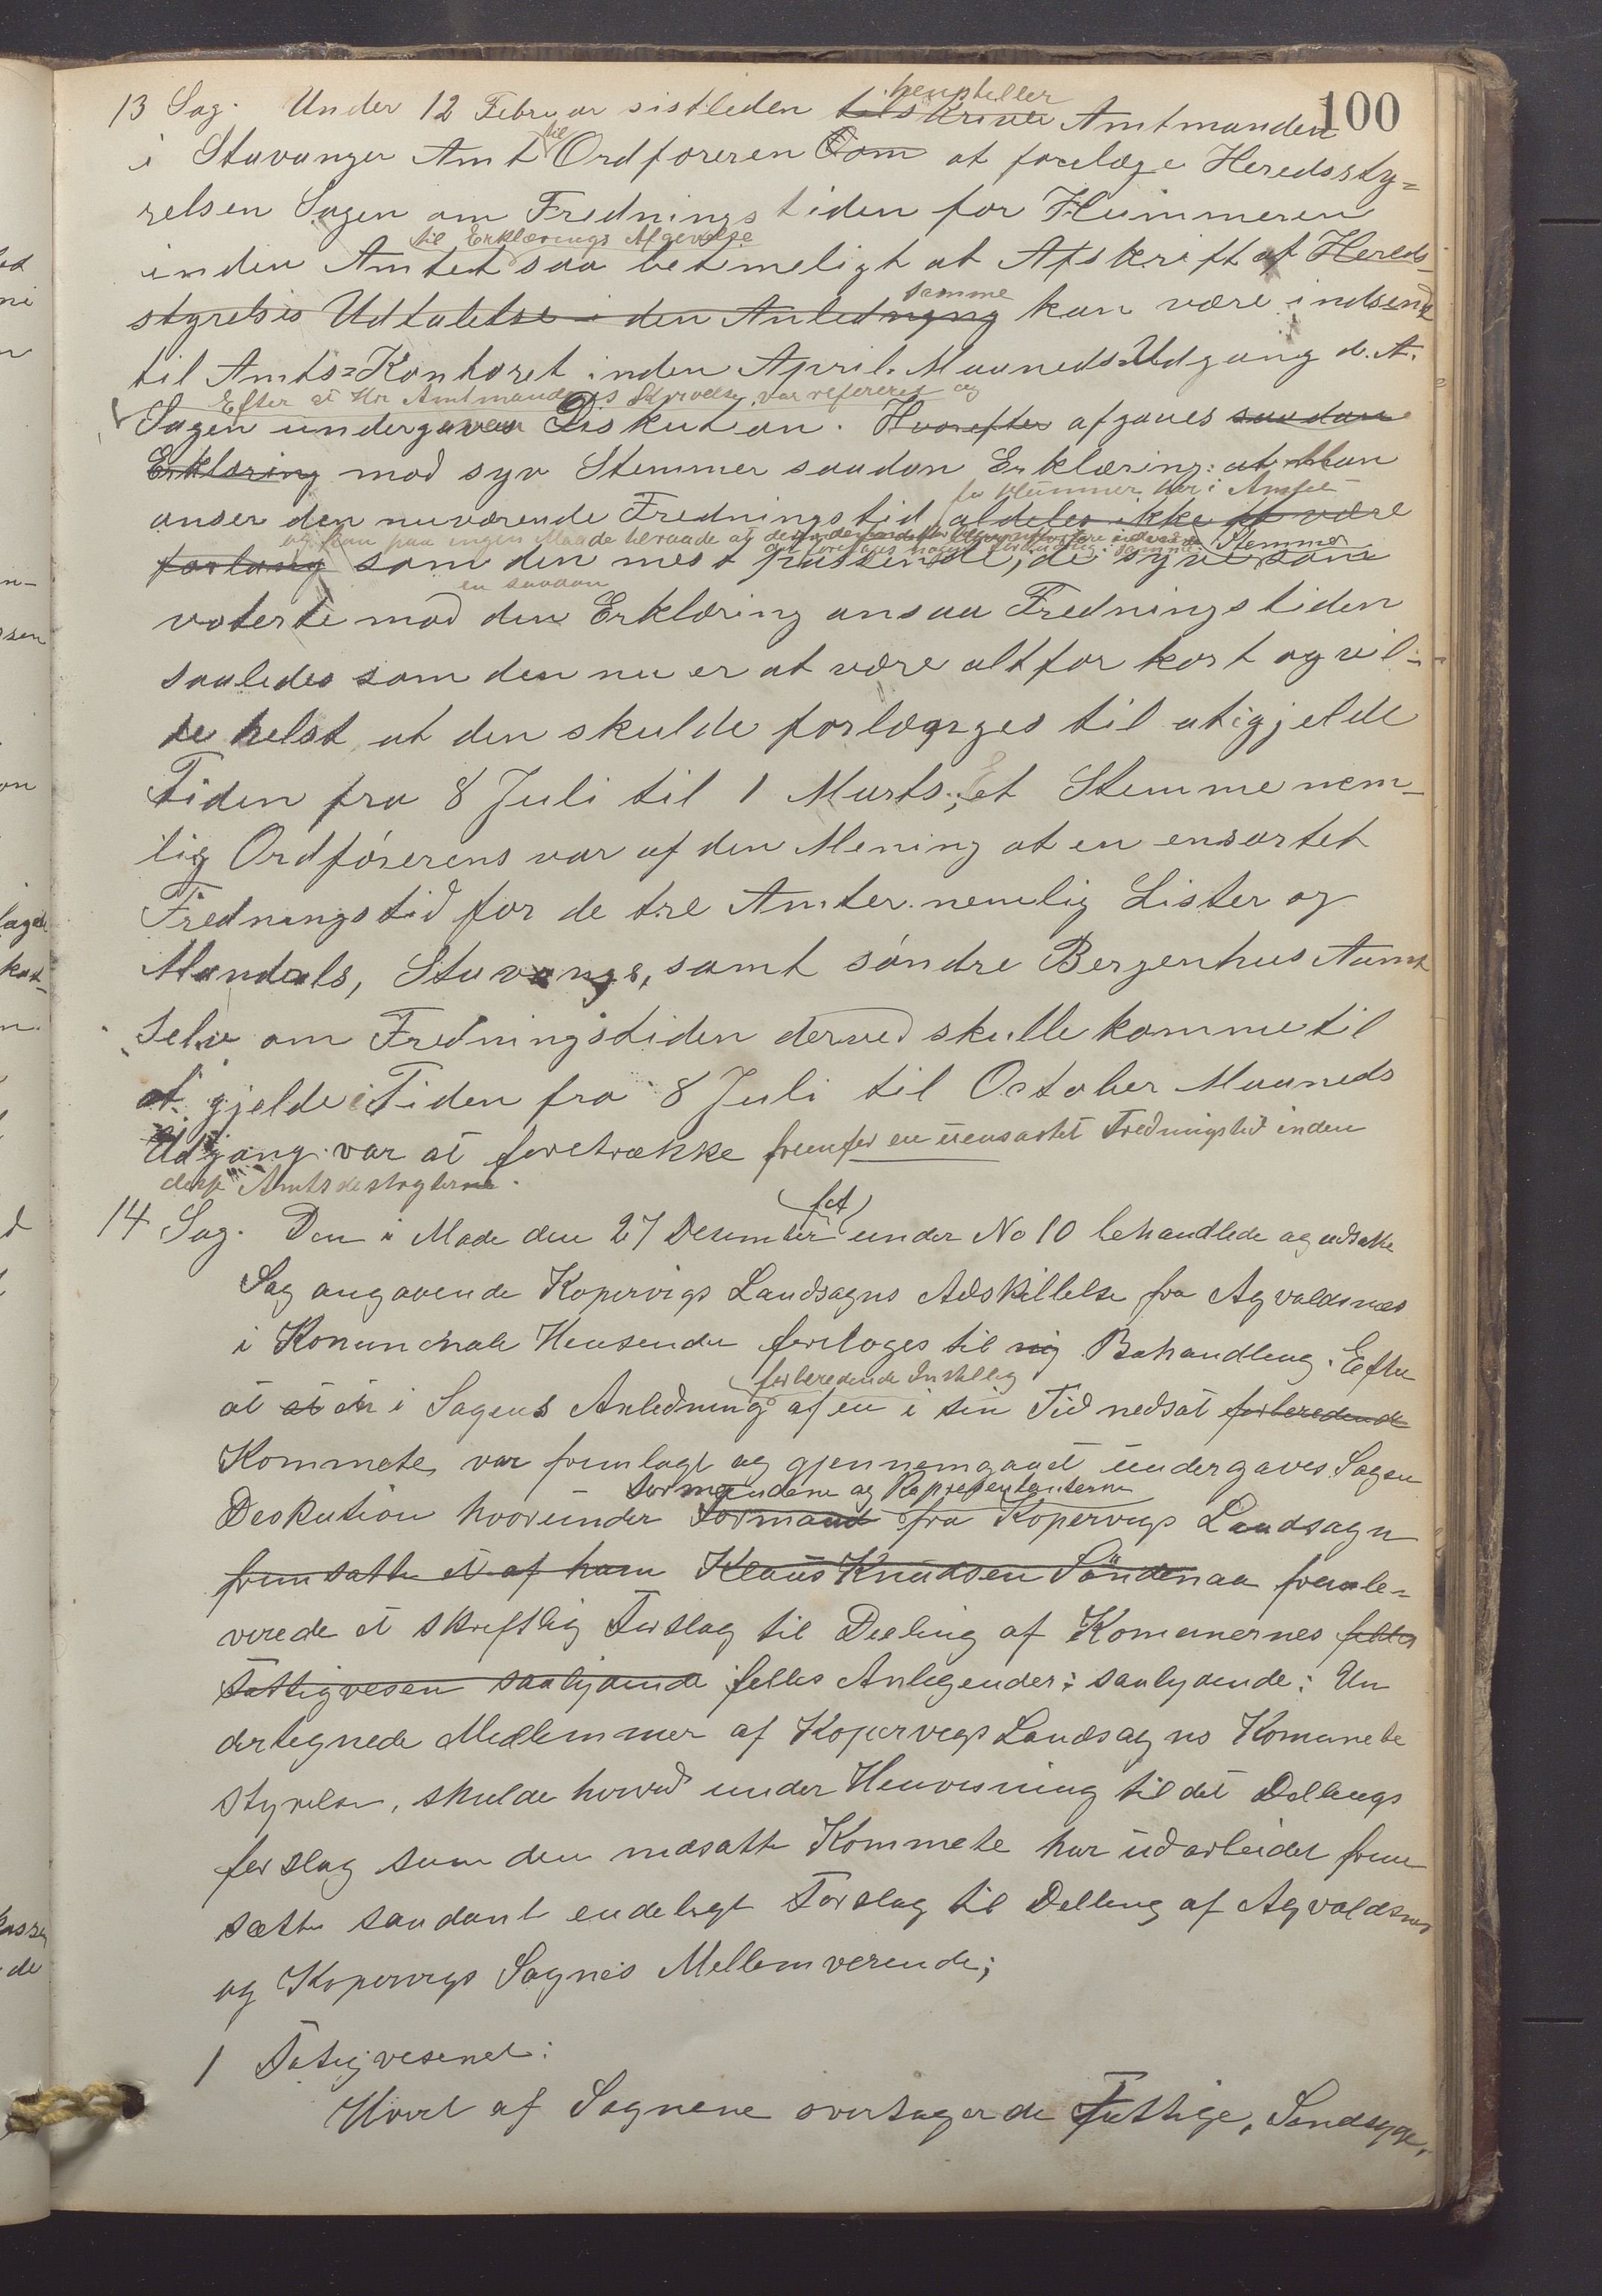 100
13 Sag. Under 12 Februar sistleden tilskriver henstiller Amtmanden
i Stavanger Amt til Ordføreren om at forelægge Heredssty=
relsen Sagen om Fredningstiden for Hummeren
til Erklærings Afgivelse
inden Amtet saa betimeligt at Afskrift af Hereds-
styrelsis Udtalelse i den Anledning samme kan være indsendt
til Amts=Kontoret inden April Maaneds Udgang d. A.
Efter at Hr Amtmandens Skrivelse var refereret og
Sagen undergaves Diskution. Hvorefter afgaves saadan
Erklæring mod syv Stemmer saadan Erklæring: at Man
anser den nuværende Fredningstid for Hummer her i Amtet aldeles ikke at være
og kan paa ingen Maade tilraade at
at foretages nogen Forandring i samme
forlang som den mest passende, de syv Stemmer som
voterte mod en saadan den Erklæring ansaa Fredningstiden
saaledes som den nu er at være altfor kort og vil-
de helst at den skulde forlænges til at gjelde
Tiden fra 8 Juli til 1 Marts; Et Stemme nem-
lig Ordførerens var af den Mening at en ensartet
Fredningstid for de tre Amter nemlig Lister og
Mandals, Stavanger, samt søndre Bergenhus Aamt
selv om Fredningstiden derved skulle komme til
at gjelde i Tiden fra 8 Juli til October Maaneds
Udgang var at foretrække fremfor en uensartet Fredningstid inden
disse Amtsdestrigterne.
14 Sag. Den i Møde den 27 Desember f.A. under No 10 behandlede og udsatte
Sag angaaende Kopervigs Landsogns Adskillelse fra Agvaldsnes
i Komunehale Henseender foretoges til ny Bahandleng. Efter
at at den i Sagens Anledning af en i sin Tid nedsat forberedende
forberedende Instilleg
Kommete, var fremlagt og gjennemgaaet undergaves Sagen
Deskution hvorunder Formand fra Kopervigs Landsogn
Formændene og Repræsentanterne
fremsatte et af ham Klaus Knudsen Søndenaa fremle-
verede et skriftlig Forslag til Deeling af Komunernes felles
Fattigvesen saalydende felles Anlegender: saalydende: Un
dertegnede Medlemmer af Kopervigs Landsogns Komunebe
styrelse, skulde herved under Henvisning til det Dellengs
forslag som den nedsatte Kommete har udarbeidet frem
sætte saadant endeligt Forslag til Delleng af Agvaldsnes
og Kopervigs Sognes Mellemverende;
1 Fatigvesenet:
Hvert af Sognene overtager de Fattige, Sindsyge,